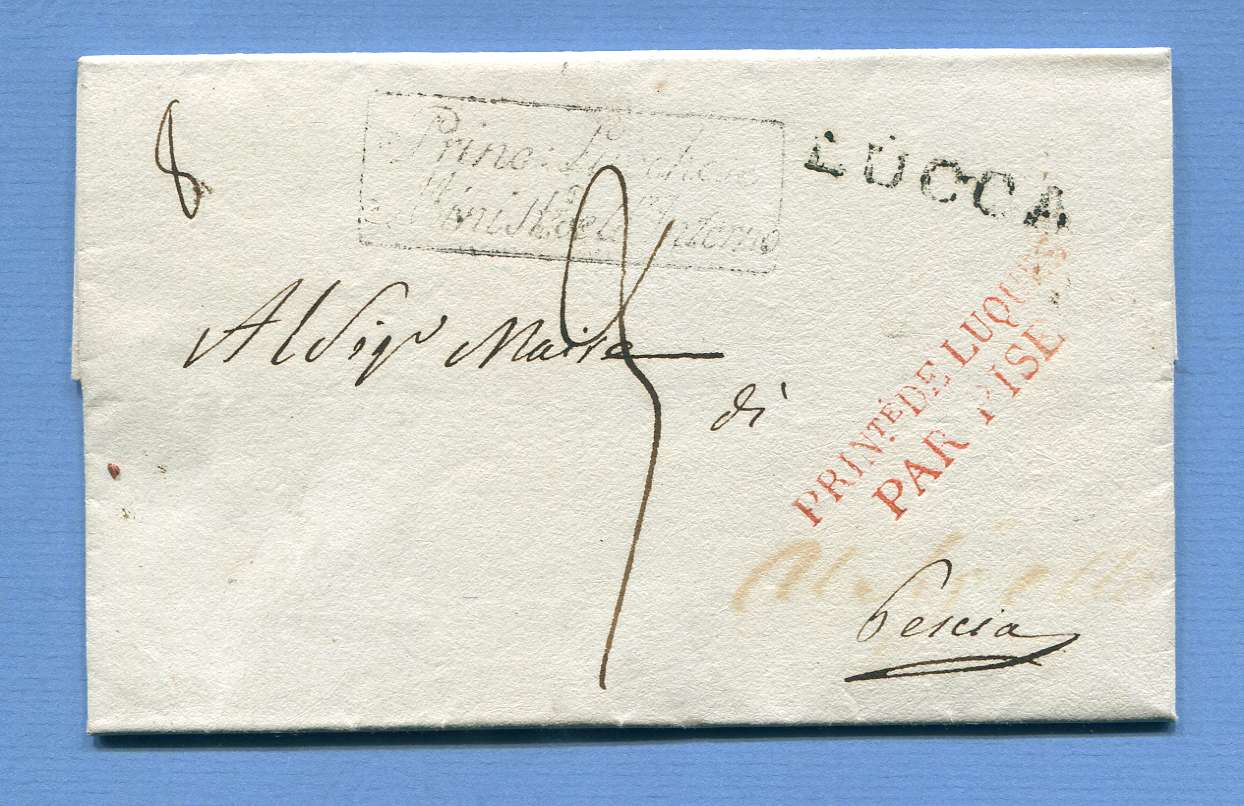 8
Princ. Lucchese
Minist. dell'Interno
LUCCA
Al Sigr Maire
di
PRINTÉ DE LUQUES
PAR PISE
Pescia